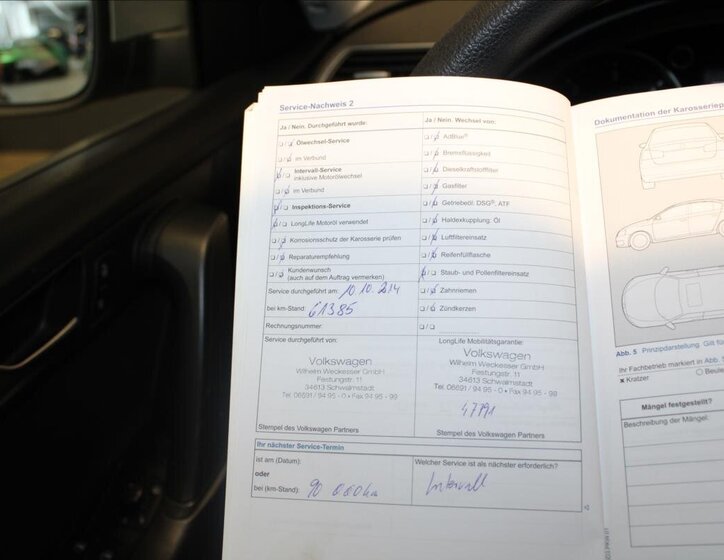 Service-Nachweis 2
Ja / Nein. Durchgeführt wurde:
Ölwechsel-Service
im Verbund
Intervall-Service
inklusive Motorölwechsel
im Verbund
Inspektions-Service
LongLife Motoröl verwendet
Korrosionsschutz der Karosserie prüfen
Reparaturempfehlung
Kundenwunsch
(auch auf dem Auftrag vermerken)
Service durchgeführt am: 10.10.214
bei km-Stand: 61385
Rechnungsnummer:
Service durchgeführt von:
Volkswagen
Wilhelm Weckesser GmbH
Festungstr. 11
34613 Schwalmstadt
Tel. 06691 / 94 95 - 0 • Fax 94 95 - 99
Stempel des Volkswagen Partners
Ja / Nein. Wechsel von:
AdBlue®
Bremsflüssigkeit
Dieselkraftstofffilter
Gasfilter
Getriebeöl: DSG®, ATF
Haldexkupplung: Öl
Luftfiltereinsatz
Reifenfüllflasche
Staub- und Pollenfiltereinsatz
Zahnriemen
Zündkerzen
LongLife Mobilitätsgarantie:
Volkswagen
Wilhelm Weckesser GmbH
Festungstr. 11
34613 Schwalmstadt
Tel. 06691 / 94 95 - 0 • Fax 94 95 - 99
47191
Stempel des Volkswagen Partners
Ihr nächster Service-Termin
ist am (Datum):
oder
bei (km-Stand): 90 000km
Welcher Service ist als nächster erforderlich?
Intervall
Dokumentation der Karosseriep
Abb. 5 Prinzipdarstellung. Gilt fü
Ihr Fachbetrieb markiert in Abb.
x Kratzer
Beule
Mängel festgestellt?
Beschreibung der Mängel.